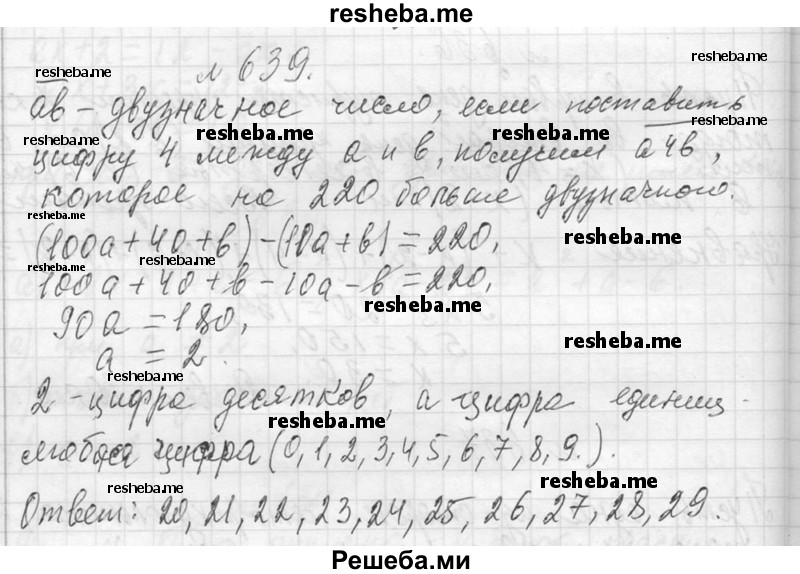 resheba.me
№ 639.
resheba.me
resheba.me
ab - двузначное число, если поставить
resheba.me
resheba.me
resheba.me
resheba.me
цифру 4 между a и b, получим a4b,
которое на 220 больше двузначного.
resheba.me
resheba.me
(100a+40+b)-(10a+b)=220,
resheba.me
100a+40+b-10a-b=220,
resheba.me
90a=180,
resheba.me
a = 2.
resheba.me
2 - цифра десятков, а цифра единиц -
resheba.me
любая цифра (0,1,2,3,4,5,6,7,8,9.).
resheba.me
resheba.me
Ответ: 20, 21, 22, 23, 24, 25, 26, 27, 28, 29.
resheba.me
Решеба.ми